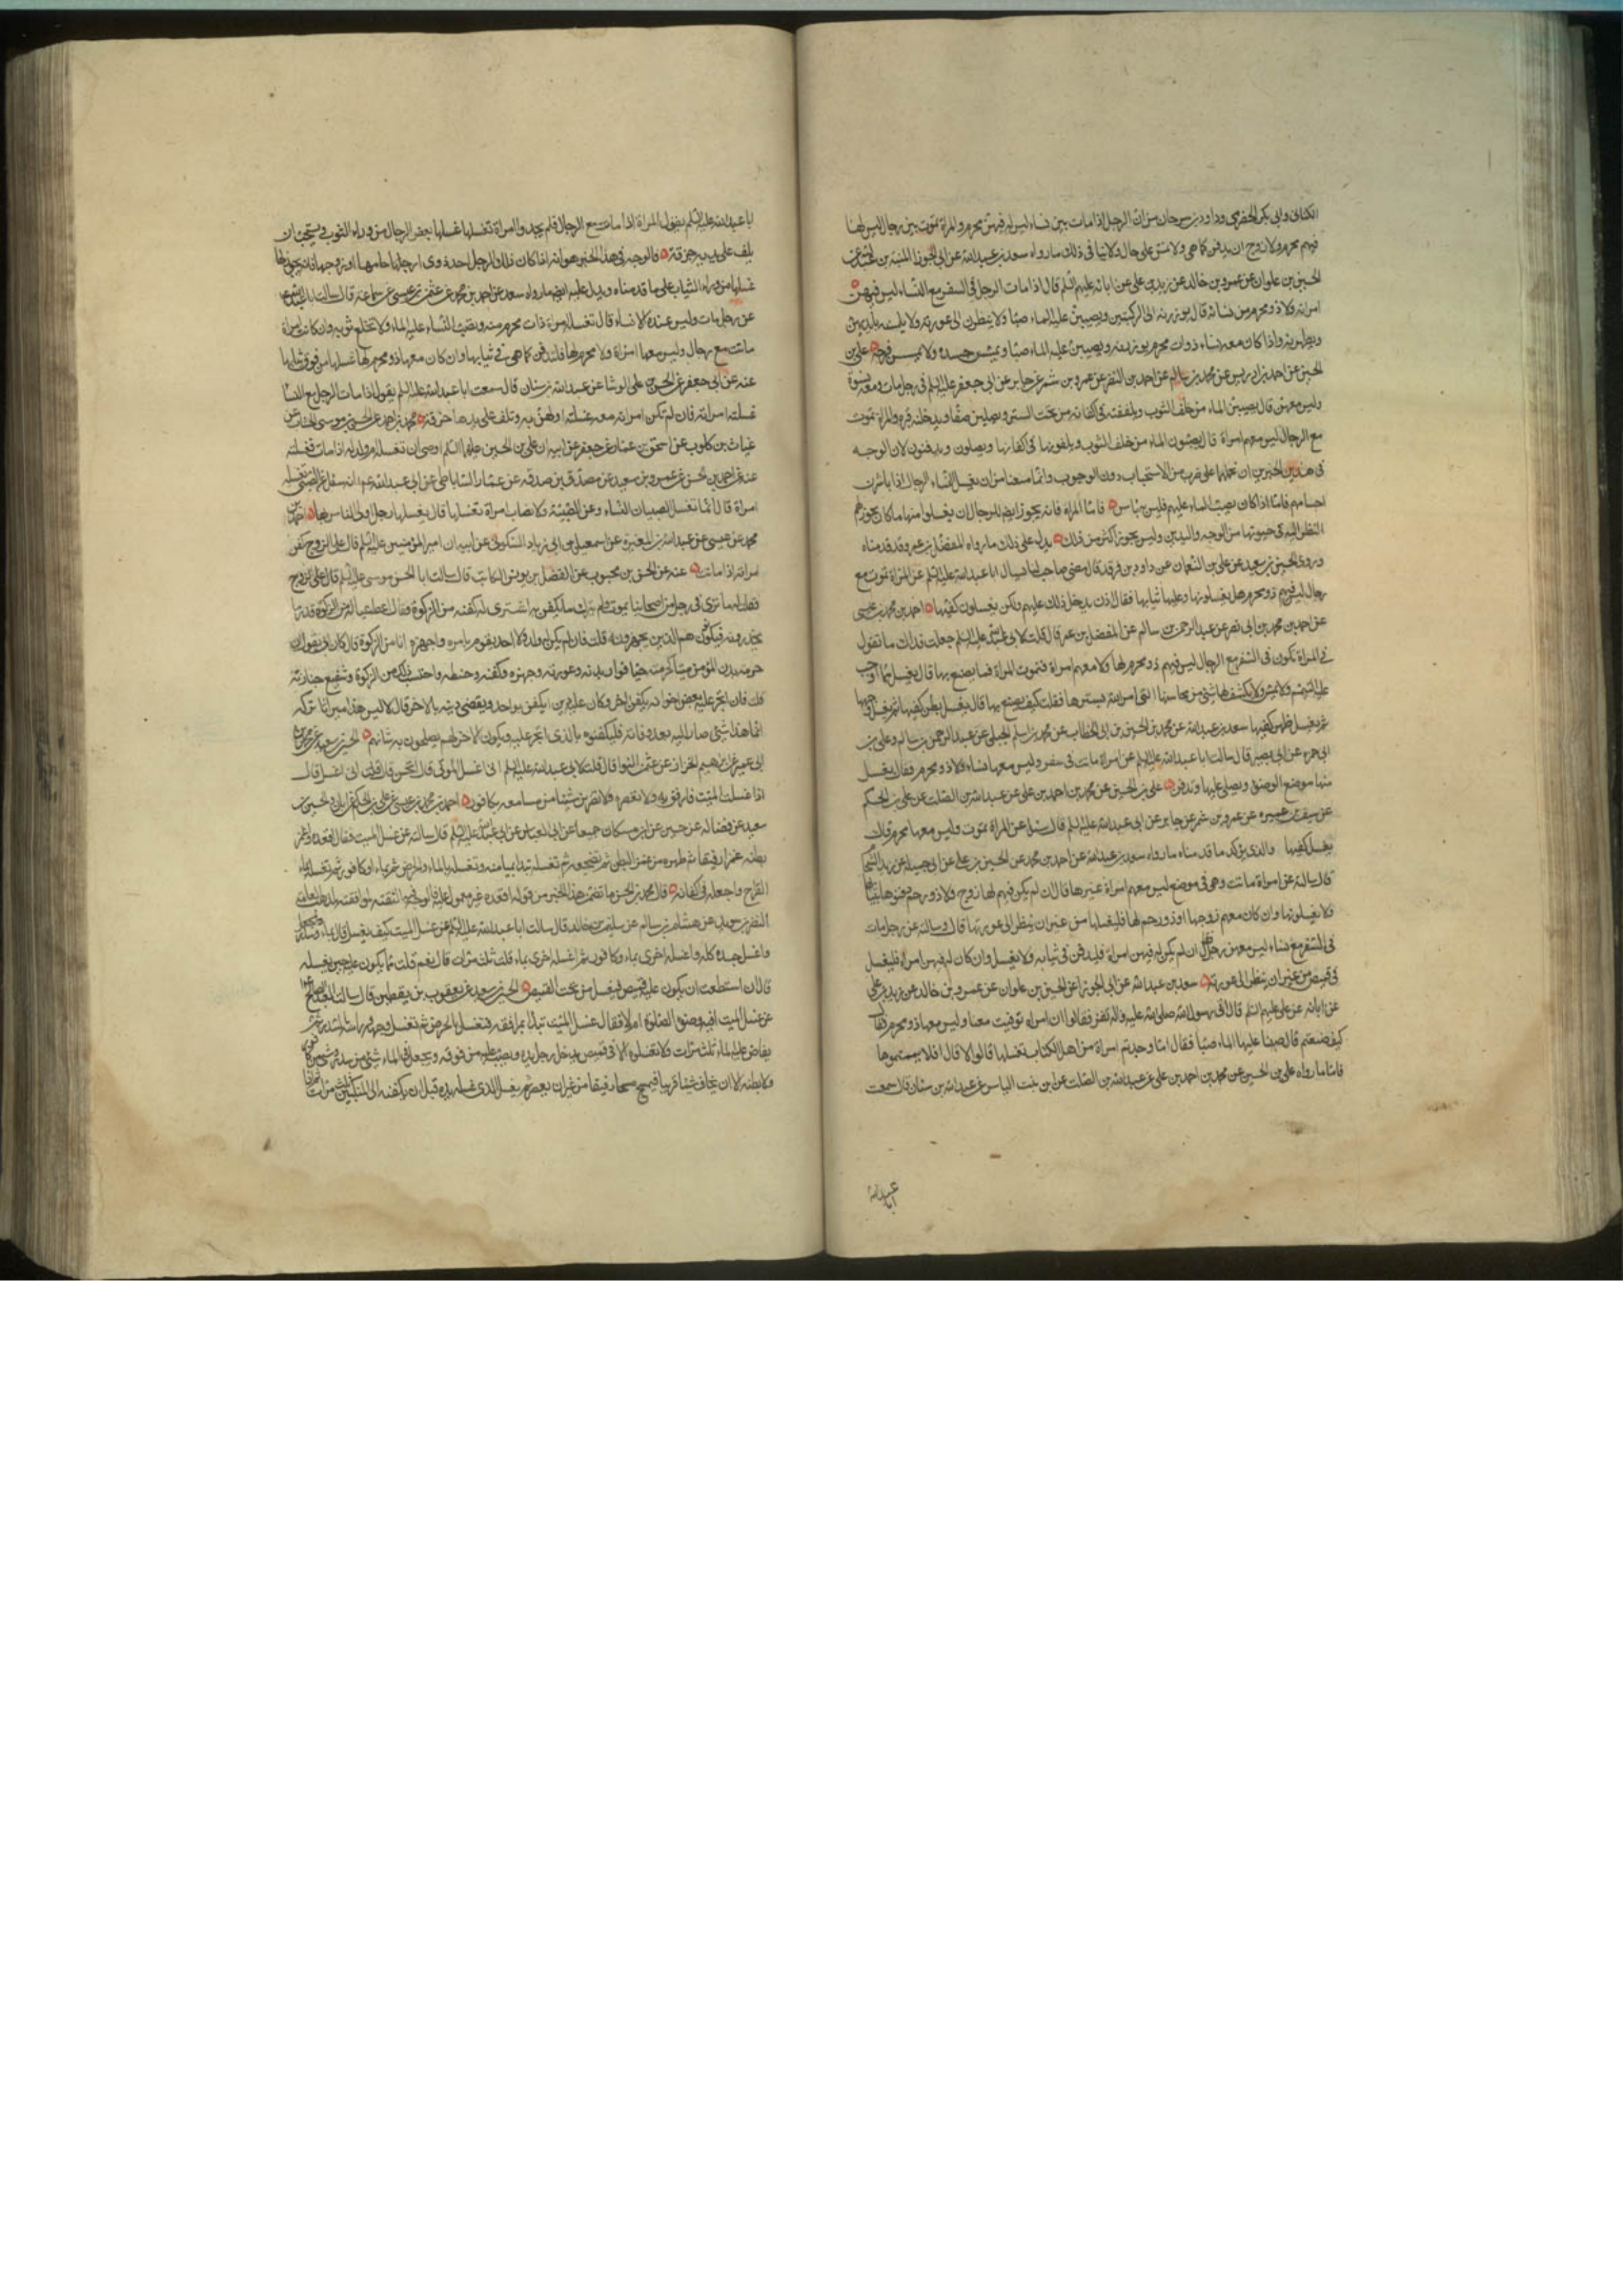 الكناني وابي بكر الحضرمي وداود بن سرحان من ان الرجل اذا مات بين نساء ليس له فيهن محرم والمراة تموت بين رجال ليس لها
فيهم محرم ولا زوج ان يدفن كما هي ولا متى على حال ولا ينافي ذلك ما رواه سعد بن عبدالله عن ابي الجوزا المنبه بن
الحسين بن علوان عن عمرو بن خالد عن زيد بن علي عن ابائه عليهم السلم قال اذا مات الرجل في السفر مع النساء ليس فيهن
امراته ولا ذو محرم من نسائه قال يوزرنه الى الركبتين ويصببن عليه الماء صبا ولا ينظرن الى عورته ولا يلمسنه بايديهن
ويطهرنه واذا كان معه نساء ذوات محرم يوزرنه ويصببن عليه الماء صبا ويمسسن جسده ولا يمسسن فرجه علي بن
الحسين عن احمد بن ادريس عن محمد بن سالم عن احمد بن النضر عن عمرو بن شمر عن جابر عن ابي جعفر عليه السلم في رجل مات ومعه نسوة
وليس معهن رجل قال يصببن الماء من خلف الثوب ويلففنه في اكفانه من تحت الستر ويصلين صفا ويدخلنه قبره والمراة تموت
مع الرجال ليس معهم امراة قال يصبون الماء من خلف الثوب ويلفونها في اكفانها ويصلون ويدفنون لان الوجه
في هذين الخبرين ان نحملهما على ضرب من الاستحباب دون الوجوب وانما منعنا من ان يغسل النساء الرجال اذا باشرن
اجسامهم فاما اذا كان بصب الماء عليهم فليس به باس فاما المراة فانه يجوز ايضا للرجال ان يغسلوا منها ما كان يجوز لهم
النظر اليه في حيوتها من الوجه واليدين وليس يجوز اكثر من ذلك يدل على ذلك ما رواه المفضل بن عمر وقد قدمناه
وروى الحسين بن سعيد عن علي بن النعمان عن داود بن فرقد قال مضى صاحب لنا يسال ابا عبدالله عليه السلم عن المراة تموت مع
رجال ليس فيهم ذو محرم هل يغسلونها وعليها ثيابها فقال اذن يدخل ذلك عليهم ولكن يغسلون كفيها احمد بن محمد بن عيسى
عن احمد بن محمد بن ابي نصر عن عبد الرحمن بن سالم عن المفضل بن عمر قال قلت لابي عبدالله عليه السلم جعلت فداك ما تقول
في المراة تكون في السفر مع الرجال ليس فيهم ذو محرم لها ولا معهم امراة فتموت المراة فما يصنع بها قال يغسل منها ما اوجب
عليه التيمم ولا تمس ولا يكشف لها شيء من محاسنها التي امر الله بسترها فقلت كيف يصنع بها قال يغسل بطن كفيها ثم يغسل وجهها
ثم يغسل ظهر كفيها سعد بن عبدالله عن محمد بن الحسين بن ابي الخطاب عن محمد بن اسلم الجبلي عن عبد الرحمن بن سالم وعلي بن
ابي حمزه عن ابي بصير قال سالت ابا عبدالله عليه السلم عن امراة ماتت في سفر وليس معها نساء ولا ذو محرم فقال يغسل
منها موضع الوضوء ويصلى عليها وتدفن علي بن الحسين عن محمد بن احمد بن علي عن عبدالله بن الصلت عن علي بن الحكم
عن سيف بن عميره عن عمرو بن شمر عن جابر عن ابي عبدالله عليه السلم قال سئل عن المراة تموت وليس معها محرم قال
يغسل كفيها والذي يؤكد ما قدمناه ما رواه سعد بن عبدالله عن احمد بن محمد عن الحسين بن علي عن ابي جميلة عن زيد الشحام
قال سالته عن امراة ماتت وهي في موضع ليس معهم امراة غيرها قال ان لم يكن فيهم لها زوج ولا ذو رحم دفنوها بثيابها
ولا يغسلونها وان كان معهم زوجها او ذو رحم لها فليغسلها من غير ان ينظر الى عورتها قال وسالته عن رجل مات
في السفر مع نساء ليس معهن رجل قال ان لم يكن له فيهن امراة فليدفن في ثيابه ولا يغسل وان كان له فيهن امراة فليغسل
في قميص من غير ان ينظر الى عورته سعد بن عبدالله عن ابي الجوزا عن الحسين بن علوان عن عمرو بن خالد عن زيد بن علي
عن ابائه عن علي عليهم السلم قال اتى رسول الله صلى الله عليه واله نفر فقالوا ان امراة توفيت معنا وليس معها ذو محرم فقال
كيف صنعتم قال صببنا عليها الماء صبا فقال اما وجدتم امراة من اهل الكتاب تغسلها قالوا لا قال افلا يممتموها
فاما ما رواه علي بن الحسين عن محمد بن احمد بن علي عن عبدالله بن الصلت عن ابن بنت الياس عن عبدالله بن سنان قال سمعت
ابا عبدالله
ابا عبدالله عليه السلم يقول المراة اذا ماتت مع الرجال فلم يجدوا امراة تغسلها غسلها بعض الرجال من وراء الثوب ويستحب ان
يلف على يديه خرقة فالوجه في هذا الخبر هو انه اذا كان ذلك الرجل احد ذوي ارحامها او زوجها فانه يجوز لها
غسلها من وراء الثياب على ما قدمناه ويدل عليه ايضا ما رواه سعد عن احمد بن محمد عن عثمن بن عيسى عن سماعة قال سالت ابا عبدالله
عن رجل مات وليس عنده الا نساء قال تغسله امراة ذات محرم منه وتصب النساء عليه الماء ولا تخلع ثوبه وان كانت امراة
ماتت مع رجال وليس معها امراة ولا محرم لها فلتدفن كما هي في ثيابها وان كان معها ذو محرم لها غسلها من فوق ثيابها
عنه عن ابي جعفر عن الحسن بن علي الوشا عن عبدالله بن سنان قال سمعت ابا عبدالله عليه السلم يقول اذا مات الرجل مع النسا
غسلته امراته فان لم تكن امراته معه غسلته اولاهن به وتلف على يديها خرقة محمد بن احمد عن الحسن بن موسى الخشاب عن
غياث بن كلوب عن اسحق بن عمار عن جعفر عن ابيه ان علي بن الحسين عليهما السلم اوصى ان تغسله ام ولد له اذا مات فغسلته
عنه عن احمد بن الحسن عن عمرو بن سعيد عن مصدق بن صدقه عن عمار الساباطي عن ابي عبدالله ع انه سئل عن الصبي تغسله
امراة قال انما تغسل الصبيان النساء وعن الصبية ولا تصاب امراة تغسلها قال يغسلها رجل اولى الناس بها احمد بن
محمد بن عيسى عن عبدالله بن المغيرة عن اسمعيل بن ابي زياد السكوني عن ابيه ان امير المؤمنين عليه السلم قال على الزوج كفن
امراته اذا ماتت عنه عن الحسن بن محبوب عن الفضل بن يونس الكاتب قال سالت ابا الحسن موسى عليه السلم قال
فقلت له ما ترى في رجل من اصحابنا يموت ولم يترك ما يكفن به اشترى له كفنه من الزكوة فقال اعط عياله من الزكوة قدر ما
يجهزونه فيكونون هم الذين يجهزونه قلت فان لم يكن له ولد ولا احد يقوم بامره فاجهزه انا من الزكوة قال كان ابي يقول ان
حرمة بدن المؤمن ميتا كحرمته حيا فوار بدنه وعورته وجهزه وكفنه وحنطه واحتسب بذلك من الزكوة وشيع جنازته
قلت فان اتجر عليه بعض اخوانه بكفن اخر وكان عليه دين ايكفن بواحد ويقضى دينه بالاخر قال لا ليس هذا ميراثا تركه
انما هذا شيء صار اليه بعد وفاته فليكفنوه بالذي اتجر عليه ويكون الاخر لهم يصلحون به شانهم الحسين بن سعيد عن محمد بن
ابي عمير عن ابرهيم الخزاز عن عثمن النوا قال قلت لابي عبدالله عليه السلم اني اغسل الموتى قال او تحسن قلت اني اغسل قال
اذا غسلت الميت فارفق به ولا تعصره ولا تقربن شيئا من مسامعه بكافور احمد بن محمد بن عيسى عن علي بن الحكم عن ابان والحسين بن
سعيد عن فضاله عن حسين عن ابن مسكان جميعا عن ابي العباس عن ابي عبدالله عليه السلم قال سالته عن غسل الميت فقال اقعده واغمز
بطنه غمزا رفيقا ثم طهره من غمز البطن ثم تضجعه ثم تغسله تبدا بميامنه وتغسله بالماء والحرض ثم بماء وكافور ثم تغسله بماء
القراح واجعله في اكفانه قال محمد بن الحسن ما تضمن هذا الخبر من قوله اقعده غير معمول عليه والوجه فيه التقية لموافقته لمذاهب العامة
النضر بن سويد عن هشام بن سالم عن سليمن بن خالد قال سالت ابا عبدالله عليه السلم عن غسل الميت كيف يغسل قال بماء وسدر
واغسل جسده كله واغسله اخرى بماء وكافور ثم اغسله اخرى بماء قلت ثلث مرات قال نعم قلت فما يكون عليه حين يغسله
قال ان استطعت ان يكون عليه قميص فيغسل من تحت القميص الحسين بن سعيد عن يعقوب بن يقطين قال سالت العبد الصالح
عن غسل الميت افيه وضوء الصلوة ام لا فقال غسل الميت تبدا بمرافقه فتغسل بالحرض ثم تغسل وجهه وراسه بالسدر ثم
يفاض عليه الماء ثلث مرات ولا تغسلوه الا في قميص يدخل رجل يده ويصب عليه من فوقه ويجعل في الماء شيء من سدر وشيء من كافور
ولا بطنه الا ان يخاف شيئا قريبا فيمسح مسحا رفيقا من غير ان يعصر ثم يغسل الذي غسله يده قبل ان يكفنه الى المنكبين ثلث مرات